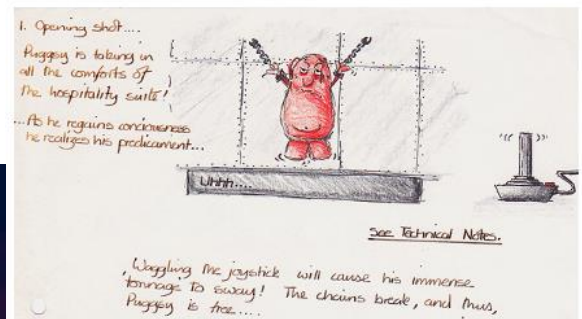 1. Opening shot....
Puggsy is taking in
all the comforts of
the hospitality suite!
...As he regains conciousness
he realizes his predicament...
Uhhh....
See Technical Notes.
Waggling the joystick will cause his immense
tonnage to sway! The chains break, and thus,
Puggsy is free....